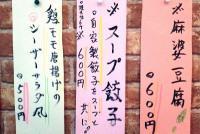 ※麻婆豆腐
○600円
※スープ餃子
○自家製餃子をスープと共に。
600円
鶏モモ唐揚げの
シーザーサラダ風
○500円